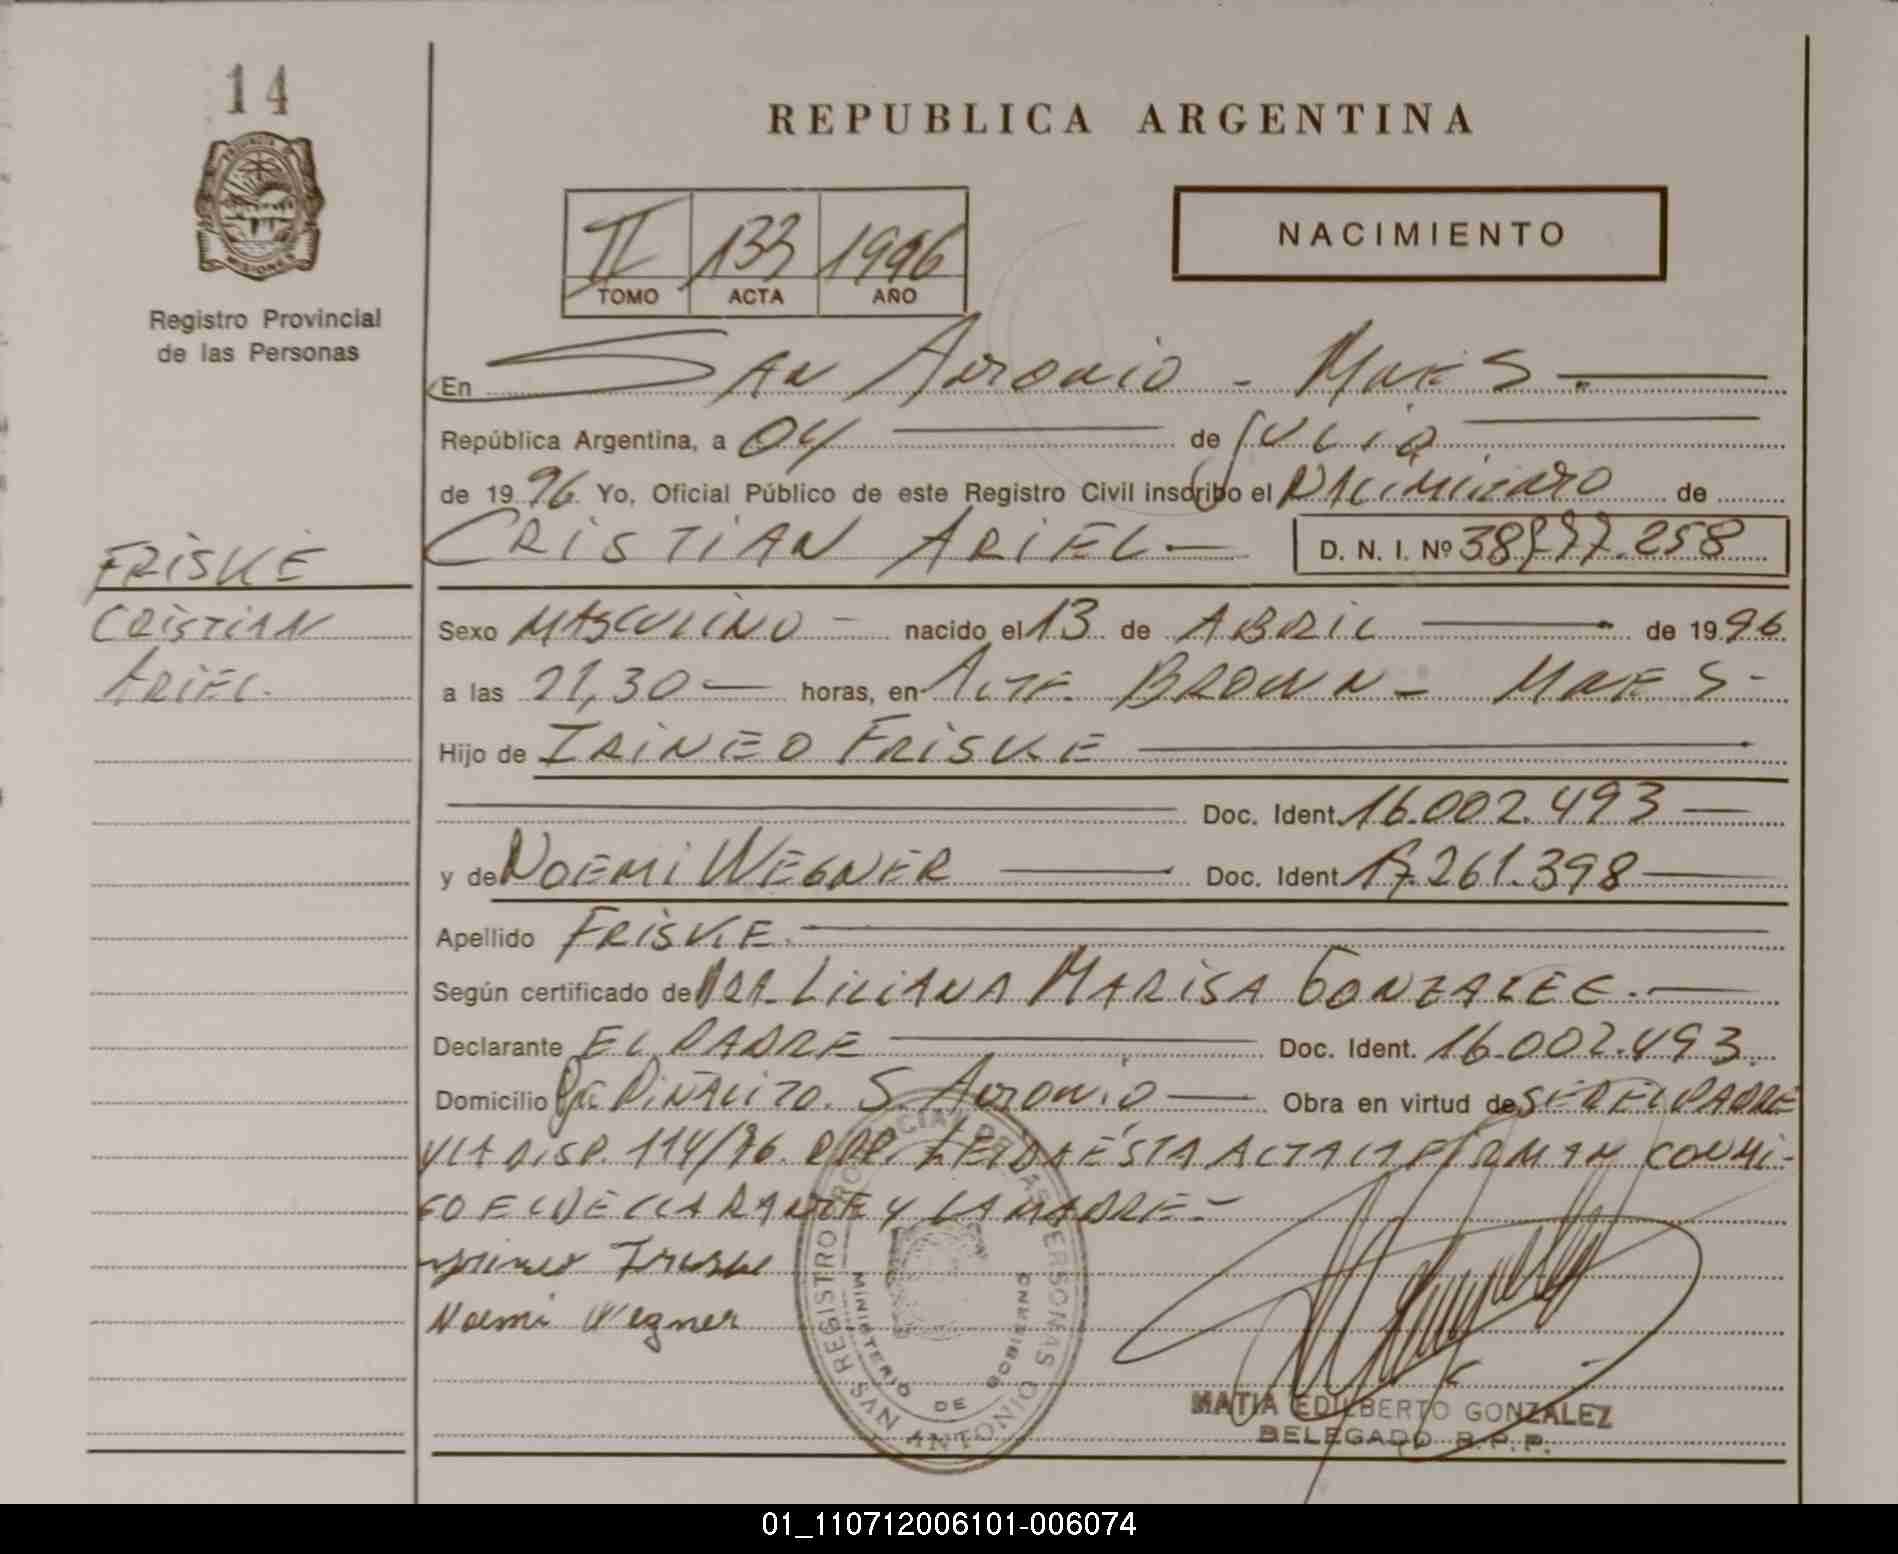 14
PROVINCIA DE
MISIONES
Registro Provincial
de las Personas
REPUBLICA ARGENTINA
II 133 1996
TOMO ACTA AÑO
NACIMIENTO
En SAN ANTONIO - MNES.
República Argentina, a 04 de JULIO
de 1996 Yo, Oficial Público de este Registro Civil inscribo el NACIMIENTO de
CRISTIAN ARIEL D. N. I. Nº 258
FRISKE
CRISTIAN
ARIEL.
Sexo MASCULINO - nacido el 13 de ABRIL de 1996
a las 21,30 horas, en ALTE BROWN - MNES -
Hijo de IRINEO FRISKE
Doc. Ident. 16.002.493
y de NOEMI WEGNER Doc. Ident 17.261.398
Apellido FRISKE.
Según certificado de DRA. LILIANA MARISA GONZALEZ.
Declarante EL PADRE Doc. Ident. 16.002.493.
Domicilio PIÑALITO. S. ANTONIO Obra en virtud de SER EL PADRE
DISP. 114/96. R.P.P. LEIDA ESTA ACTA LA FIRMAN CONMI-
GO EL DECLARANTE Y LA MADRE -
Irineo Friske
Noemi Wegner
REGISTRO PROVINCIAL DE LAS PERSONAS
MINISTERIO DE GOBIERNO
SAN ANTONIO
MATIA EDILBERTO GONZALEZ
DELEGADO R.P.P.
01_110712006101-006074